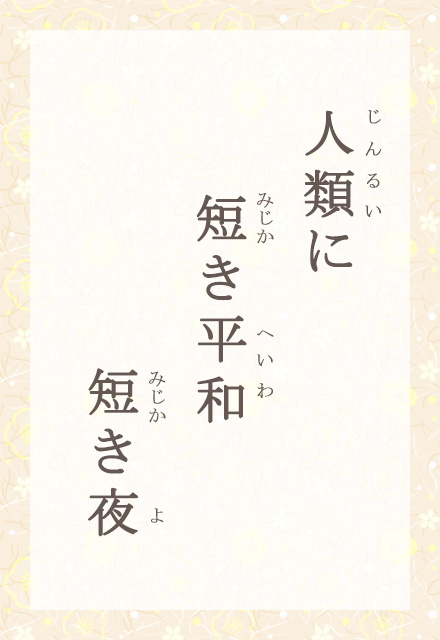 人類に
じんるい
短き平和
みじか へいわ
短き夜
みじか よ